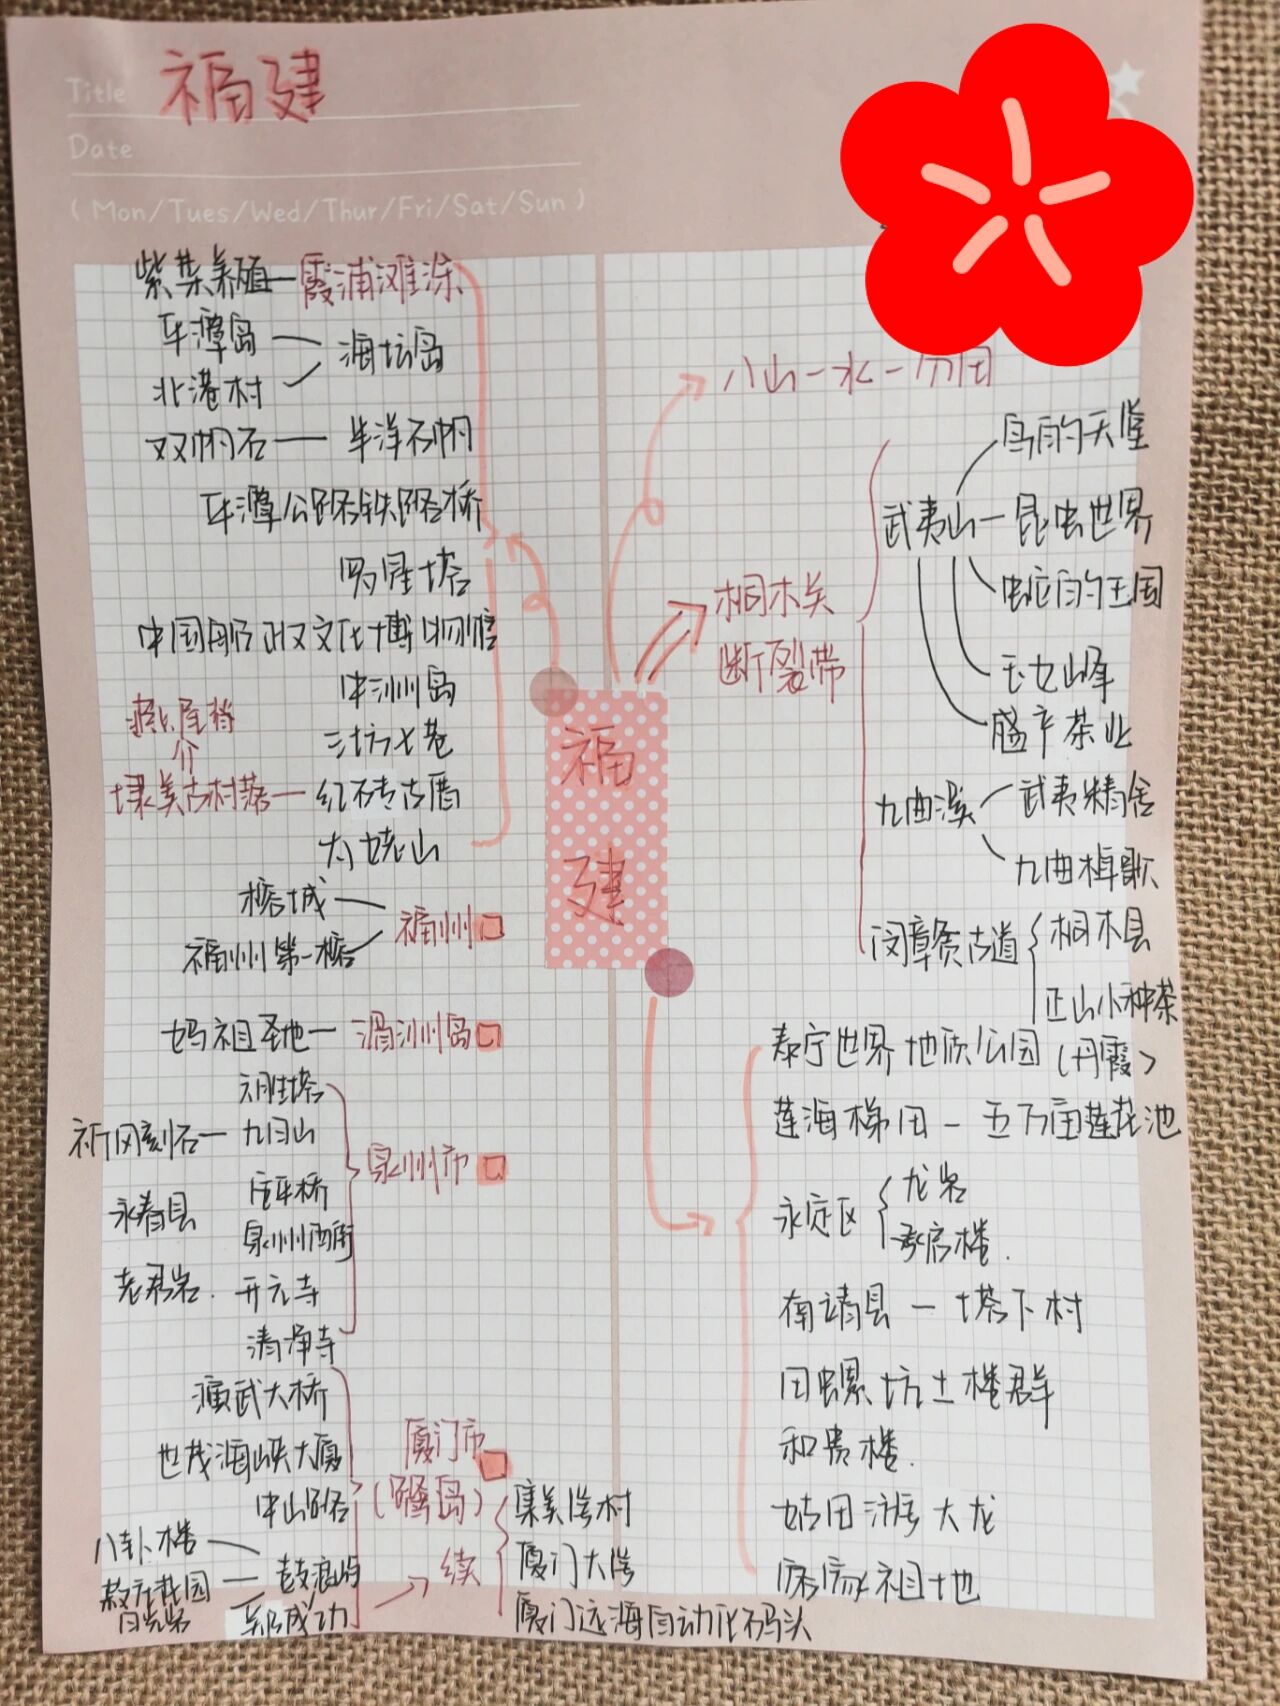 Title 福建
Date
( Mon/Tues/Wed/Thur/Fri/Sat/Sun )
紫菜养殖一霞浦滩涂
平潭岛
海坛岛
北港村
双帆石一半洋石帆
平潭公路铁路桥
罗星塔
中国船政文化博物馆
中洲岛
三坊七巷
埭美古村落一红砖古厝
太姥山
榕城
福州
福州第一榕
妈祖圣地一湄洲岛
六胜塔
祈风刻石一九日山
泉州市
永春县
泉州西街
老君岩.
开元寺
清净寺
演武大桥
世茂海峡大厦
中山路
厦门市
(鹭岛)
八卦楼
鼓浪屿
菽庄花园
日光岩
郑成功
续
集美学村
厦门大学
厦门远海自动化码头
福
建
八山一水一分田
桐木关
断裂带
武夷山
鸟的天堂
昆虫世界
蛇的王国
玉女峰
盛产茶业
九曲溪
武夷精舍
九曲棹歌
桐木县
正山小种茶
泰宁世界地质公园(丹霞)
莲海梯田一五万亩莲花池
永定区
龙岩
承启楼.
南靖县一塔下村
田螺坑土楼群
和贵楼.
姑田游大龙
客家祖地